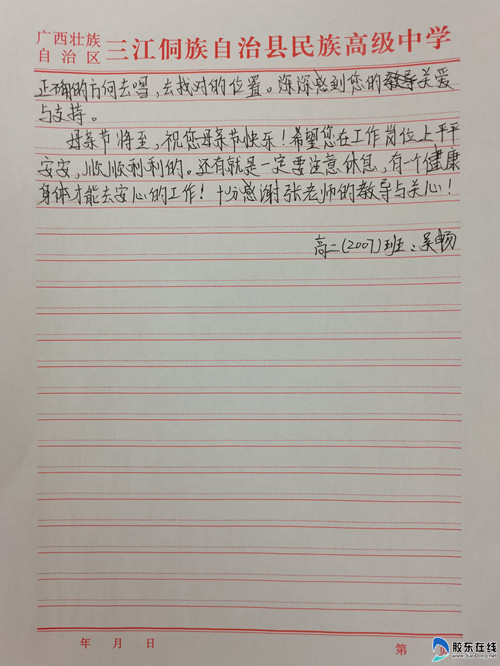 广西壮族
自治区
三江侗族自治县民族高级中学
正确的方向去唱，去找对的位置。深深感到您的教导关爱
与支持。
母亲节将至，祝您母亲节快乐！希望您在工作岗位上平平
安安，顺顺利利的。还有就是一定要注意休息，有一个健康
身体才能去安心的工作！十分感谢张老师的教导与关心！
高二（2007）班：吴畅
年 月 日
第
胶东在线
www.jiaodong.net